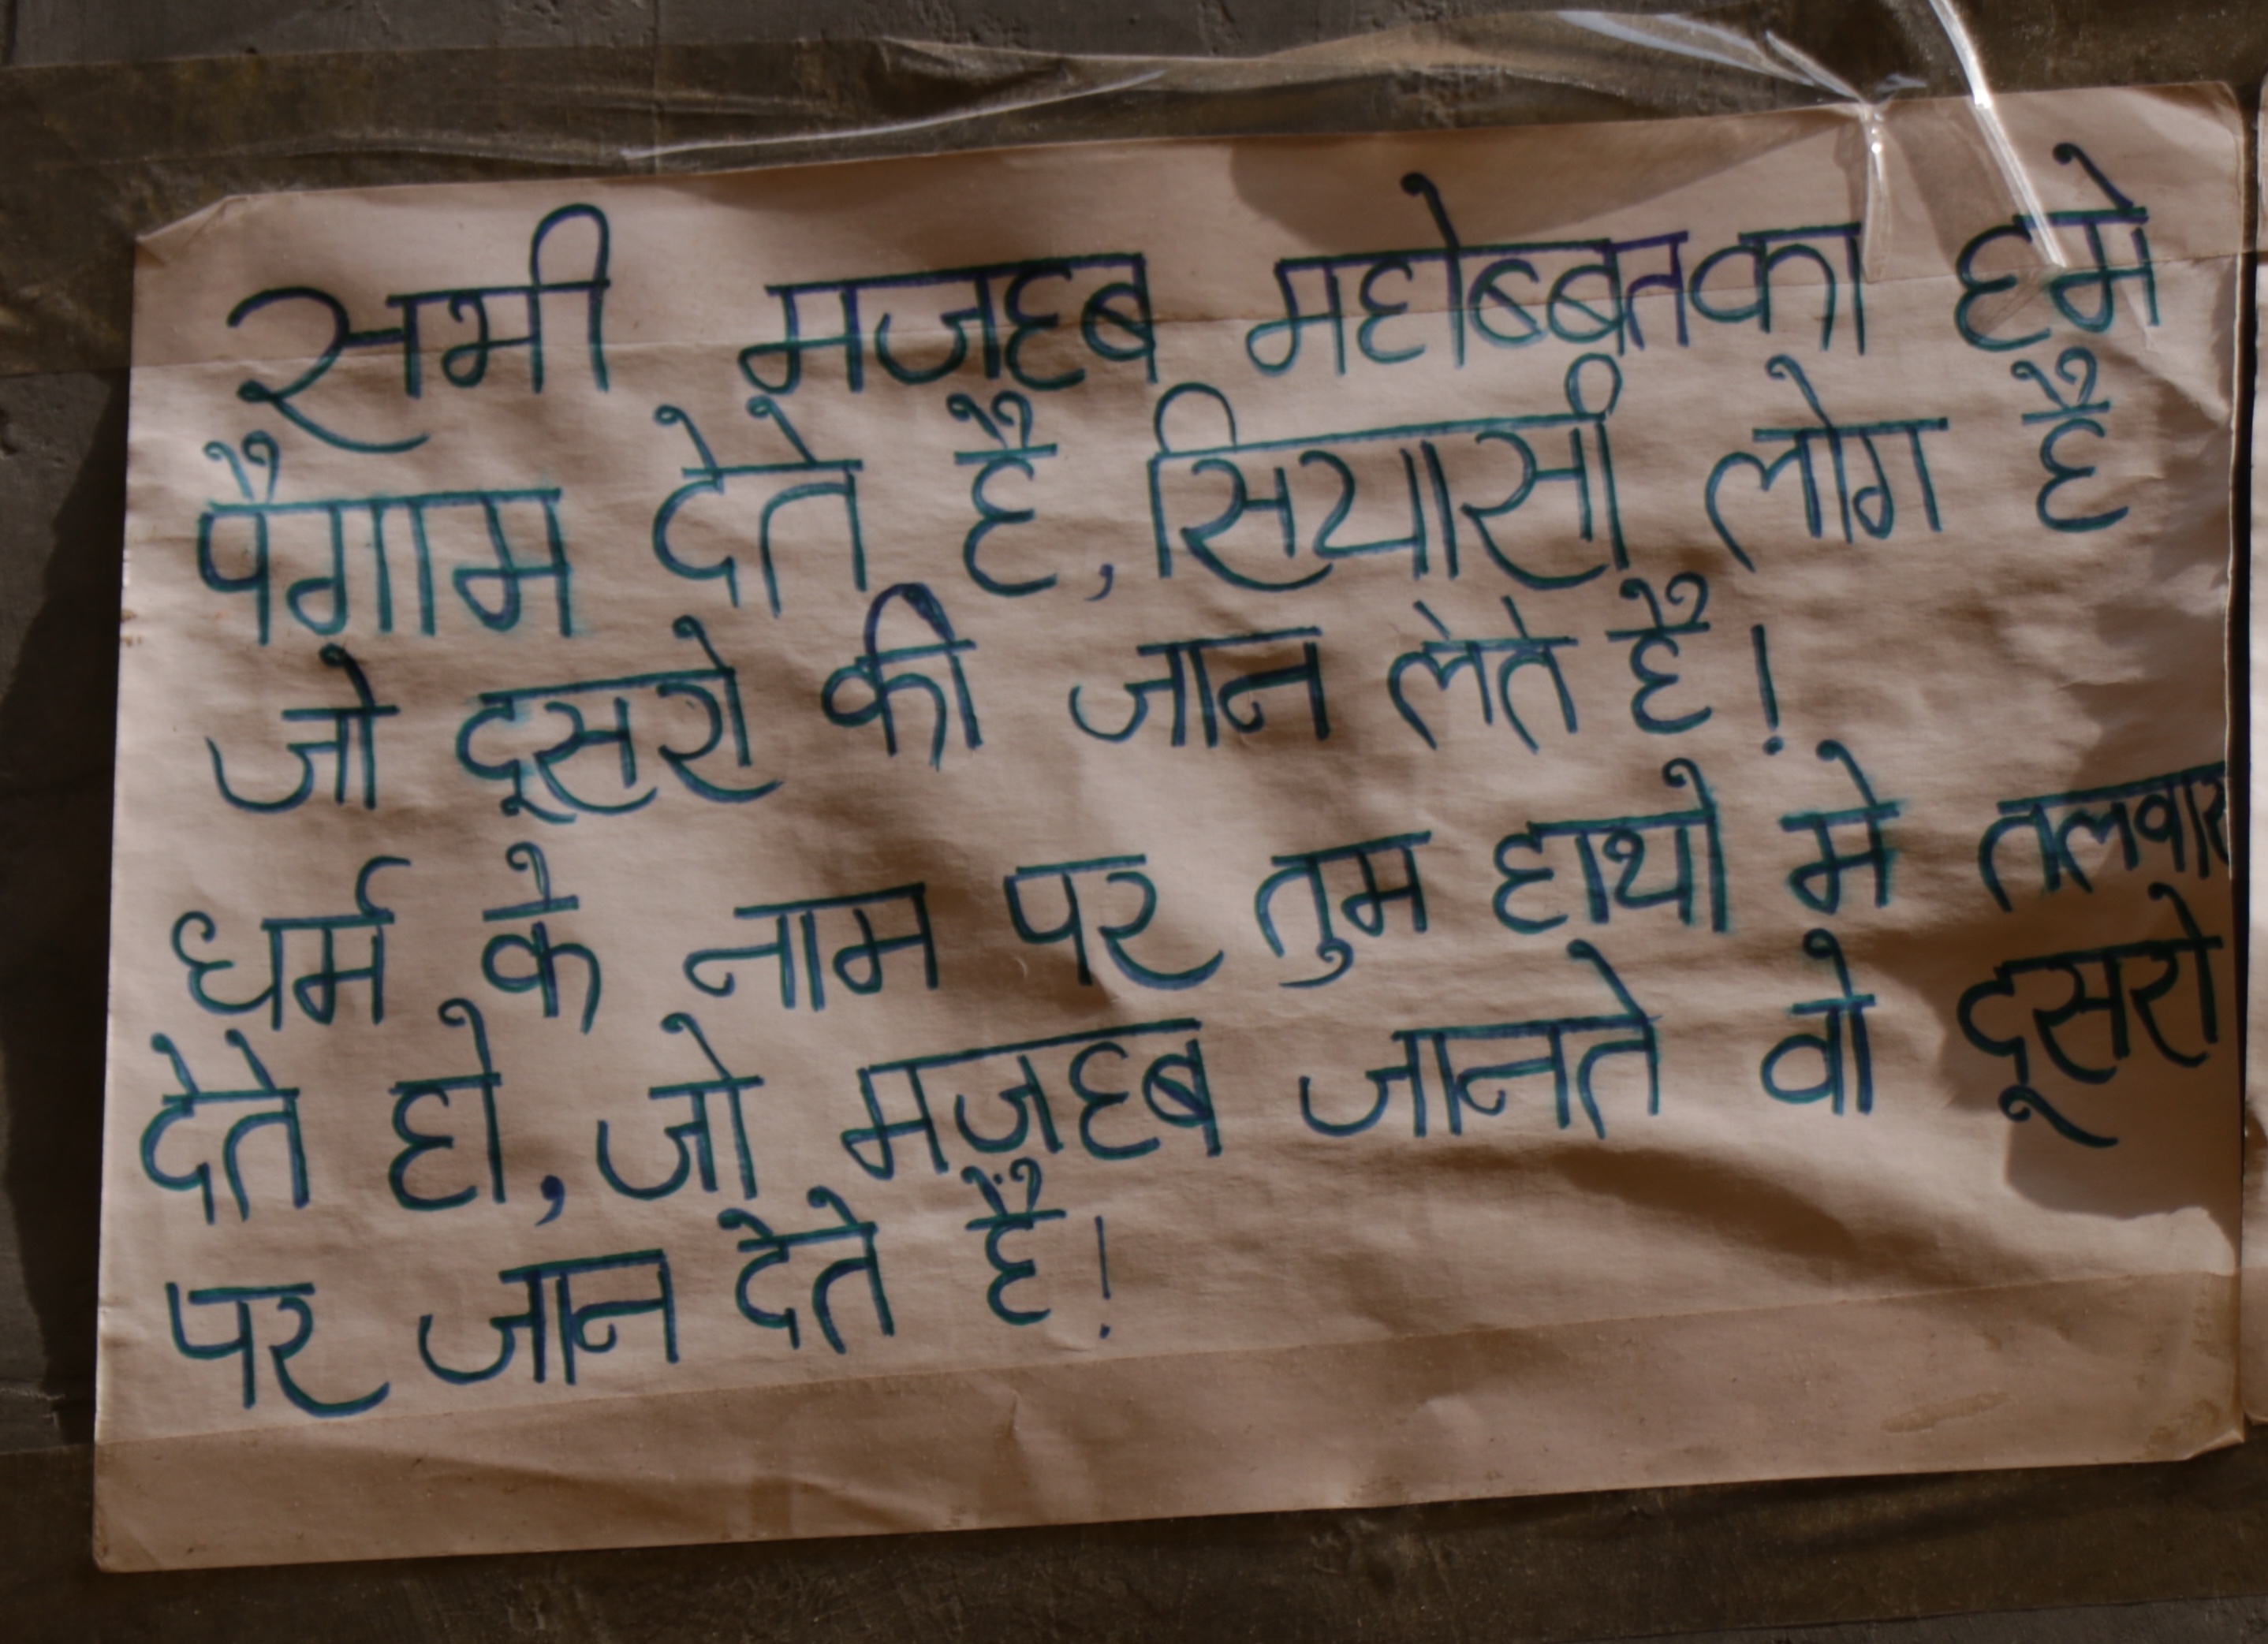 सभी मजहब महोब्बतका हमे
पैगाम देते है, सियासी लोग है
जो दूसरो की जान लेते है!
धर्म के नाम पर तुम हाथो मे तलवार
देते हो, जो मज़हब जानते वो दूसरो
पर जान देते हैं!